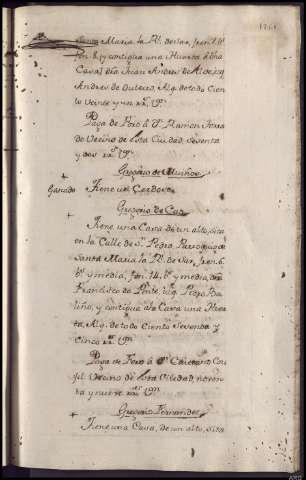 Santa Maria la Rl. de Sar, fren. 6 bs.
fon. 8. y contigua una Huerta á dha
Casa; dra Juan Andres de
Andres de Outeiro, Alq. de todo Cien
to veinte y un rrs. vn.
Paga de Foro á Dn. Ramon
do Vecino de esta Ciudad, Setenta
y dos rrs. vn.
Gregorio de Muiños
Ganado Tiene un Cerdo
Gregorio de Cas
Tiene una Casa de un alto, sita
en la Calle de Sn. Pedro Parroquia de
Santa Maria la Rl. de Sar, fren. 6
bs. y media, fon. 14. bs. y media, dra
Francisco de Ponte, izq. Pedro Ba
liño, y contigua á la Casa una Huer
ta, Alq. de todo Ciento Setenta y
Cinco rrs. vn
Paga de Foro á Dn. Caietano Cou
sel Vecino de esta Ciudad, noven
ta y nueve rrs. vn
Gregorio Fernandez
Tiene una Casa, de un alto, Sita